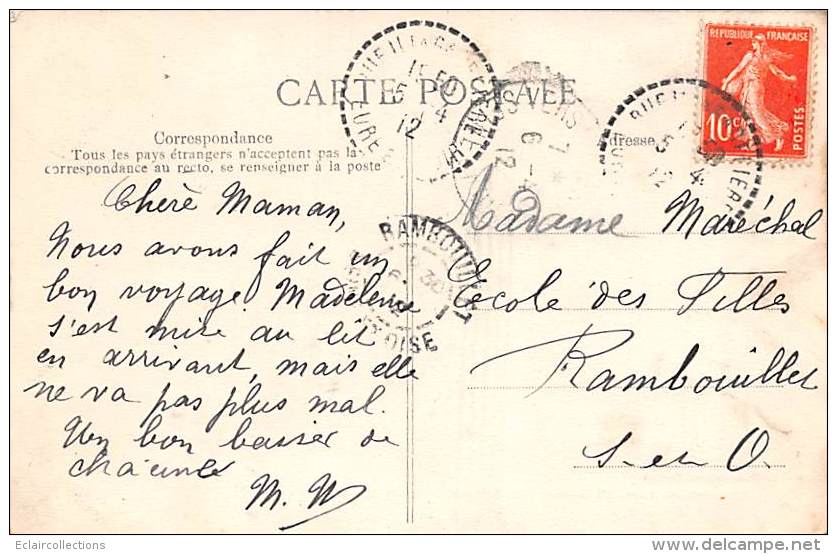 CARTE POSTALE
Correspondance
Tous les pays étrangers n'acceptent pas la
correspondance au recto, se renseigner à la poste
Adresse
REPUBLIQUE FRANÇAISE
10c
POSTES
RAMBOUILLET
OISE
Chère Maman,
Nous avons fait un
bon voyage. Madeleine
s'est mise au lit
en arrivant, mais elle
ne va pas plus mal.
Un bon baiser de
chacune
M. M
Madame Maréchal
école des Filles
Rambouillet
S. et O.
Eclaircollections
www.delcampe.net